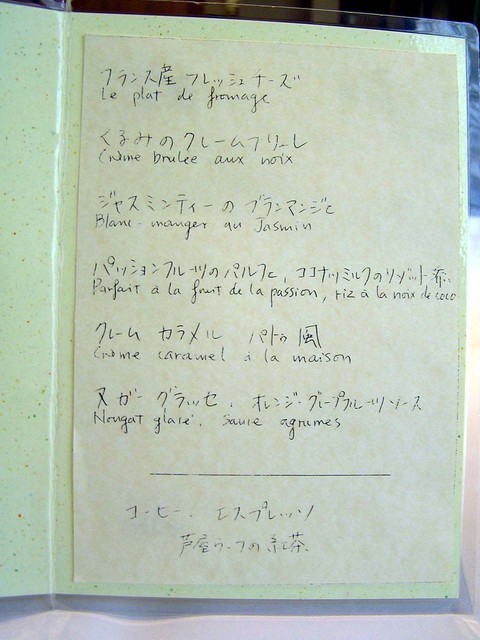 フランス産 フレッシュチーズ
Le plat de fromage
くるみのクレームブリュレ
Crème brulee aux noix
ジャスミンティーの ブランマンジェ
Blanc-manger au Jasmin
パッションフルーツのパルフェ、ココナッツミルクのリゾット添え
Parfait à la fruit de la passion, riz à la noix de coco
クレーム カラメル パトゥ風
Crème caramel à la maison
ヌガー グラッセ、オレンジ・グレープフルーツソース
Nougat glacé, sauce agrumes
コーヒー、エスプレッソ
芦屋 の紅茶